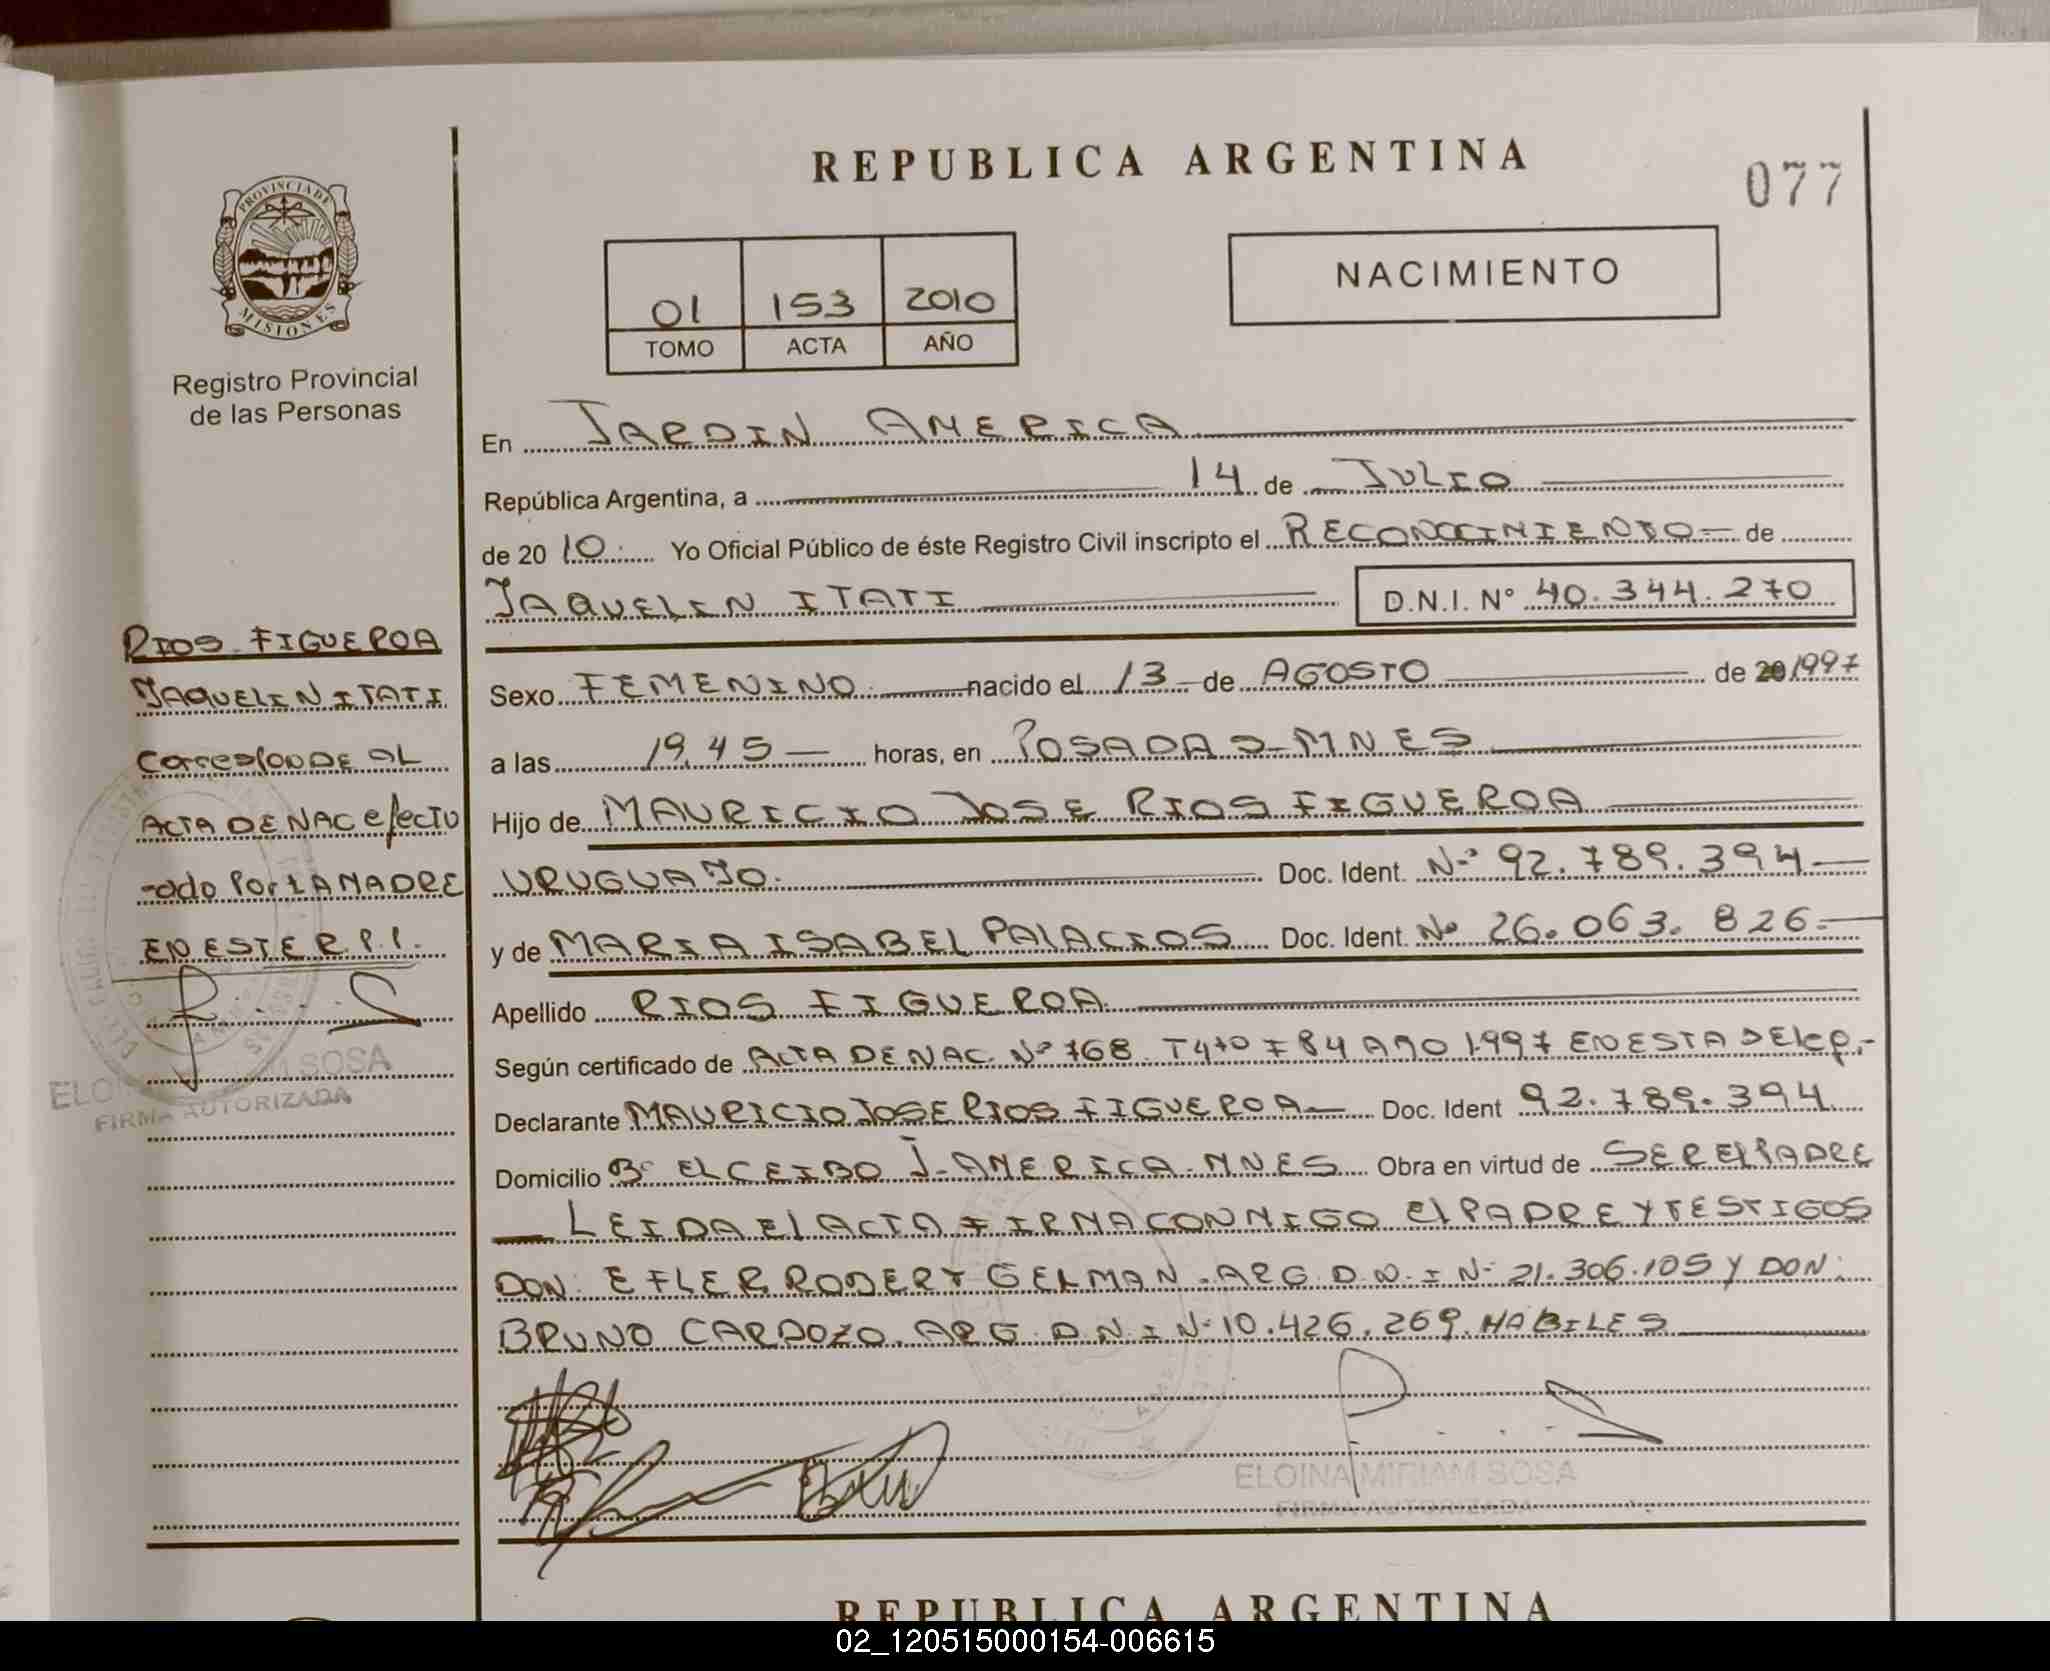 REPUBLICA ARGENTINA
077
PROVINCIA DE
MISIONES
Registro Provincial
de las Personas
01 153 2010
TOMO ACTA AÑO
NACIMIENTO
En JARDIN AMERICA
República Argentina, a 14 de JULIO
de 20 10. Yo Oficial Público de éste Registro Civil inscripto el RECONOCIMIENTO de
JAQUELIN ITATI D.N.I. N° 40.344.270
RIOS FIGUEROA
JAQUELIN ITATI
CorresponDE AL
ACTA DE NAC efectu
-ado Por LA MADRE
EN ESTE R.P.P.
ELOINA MIRIAM SOSA
FIRMA AUTORIZADA
Sexo FEMENINO nacido el 13 de AGOSTO de 20 1997
a las 19,45 horas, en POSADAS-MNES
Hijo de MAURICIO JOSE RIOS FIGUEROA
URUGUAYO. Doc. Ident. N° 92.789.394
y de MARIA ISABEL PALACIOS Doc. Ident. N° 26.063.826
Apellido RIOS FIGUEROA.
Según certificado de ACTA DE NAC. N° 768 AÑO 1.997 EN ESTA
Declarante MAURICIO JOSE RIOS FIGUEROA Doc. Ident 92.789.394.
Domicilio B° EL CEIBO J. AMERICA-MNES Obra en virtud de SER EL PADRE
LEIDA El ACTA FIRMA CONMIGO El PADRE Y TESTIGOS
DON: EFLER RODERY GELMAN. ARG. D.N.I N° 21.306.105 Y DON:
BRUNO CARDOZO. ARG. D.N.I N° 10.426.269. HABILES
ELOINA MIRIAM SOSA
FIRMA AUTORIZADA
REPUBLICA ARGENTINA
02_120515000154-006615